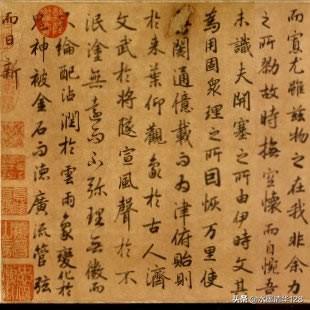 而寡尤雖茲物之在我非余力
之所勠故時撫空懷而自惋吾
未識夫開塞之所由伊時文其
為用固衆理之所因恢万里使
無閡通億載而為津俯貽則
於來葉仰觀象於古人濟
文武於將墜宣風聲於不
泯塗無遠而不弥理無微而
不綸配沾潤於雲雨象變化於
鬼神被金石而德廣流管弦
而日新